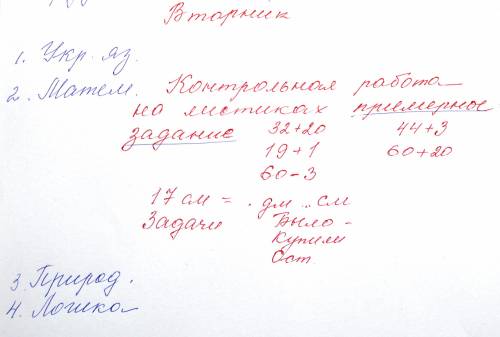 Вторник
1. Укр. яз.
2. Матем. Контрольная работа
на листиках примерное
задание 32+20 44+3
19+1 60+20
60-3
17 см = . дм .. см
Задачи Было -
Купили
Ост
3. Природ.
4. Логика